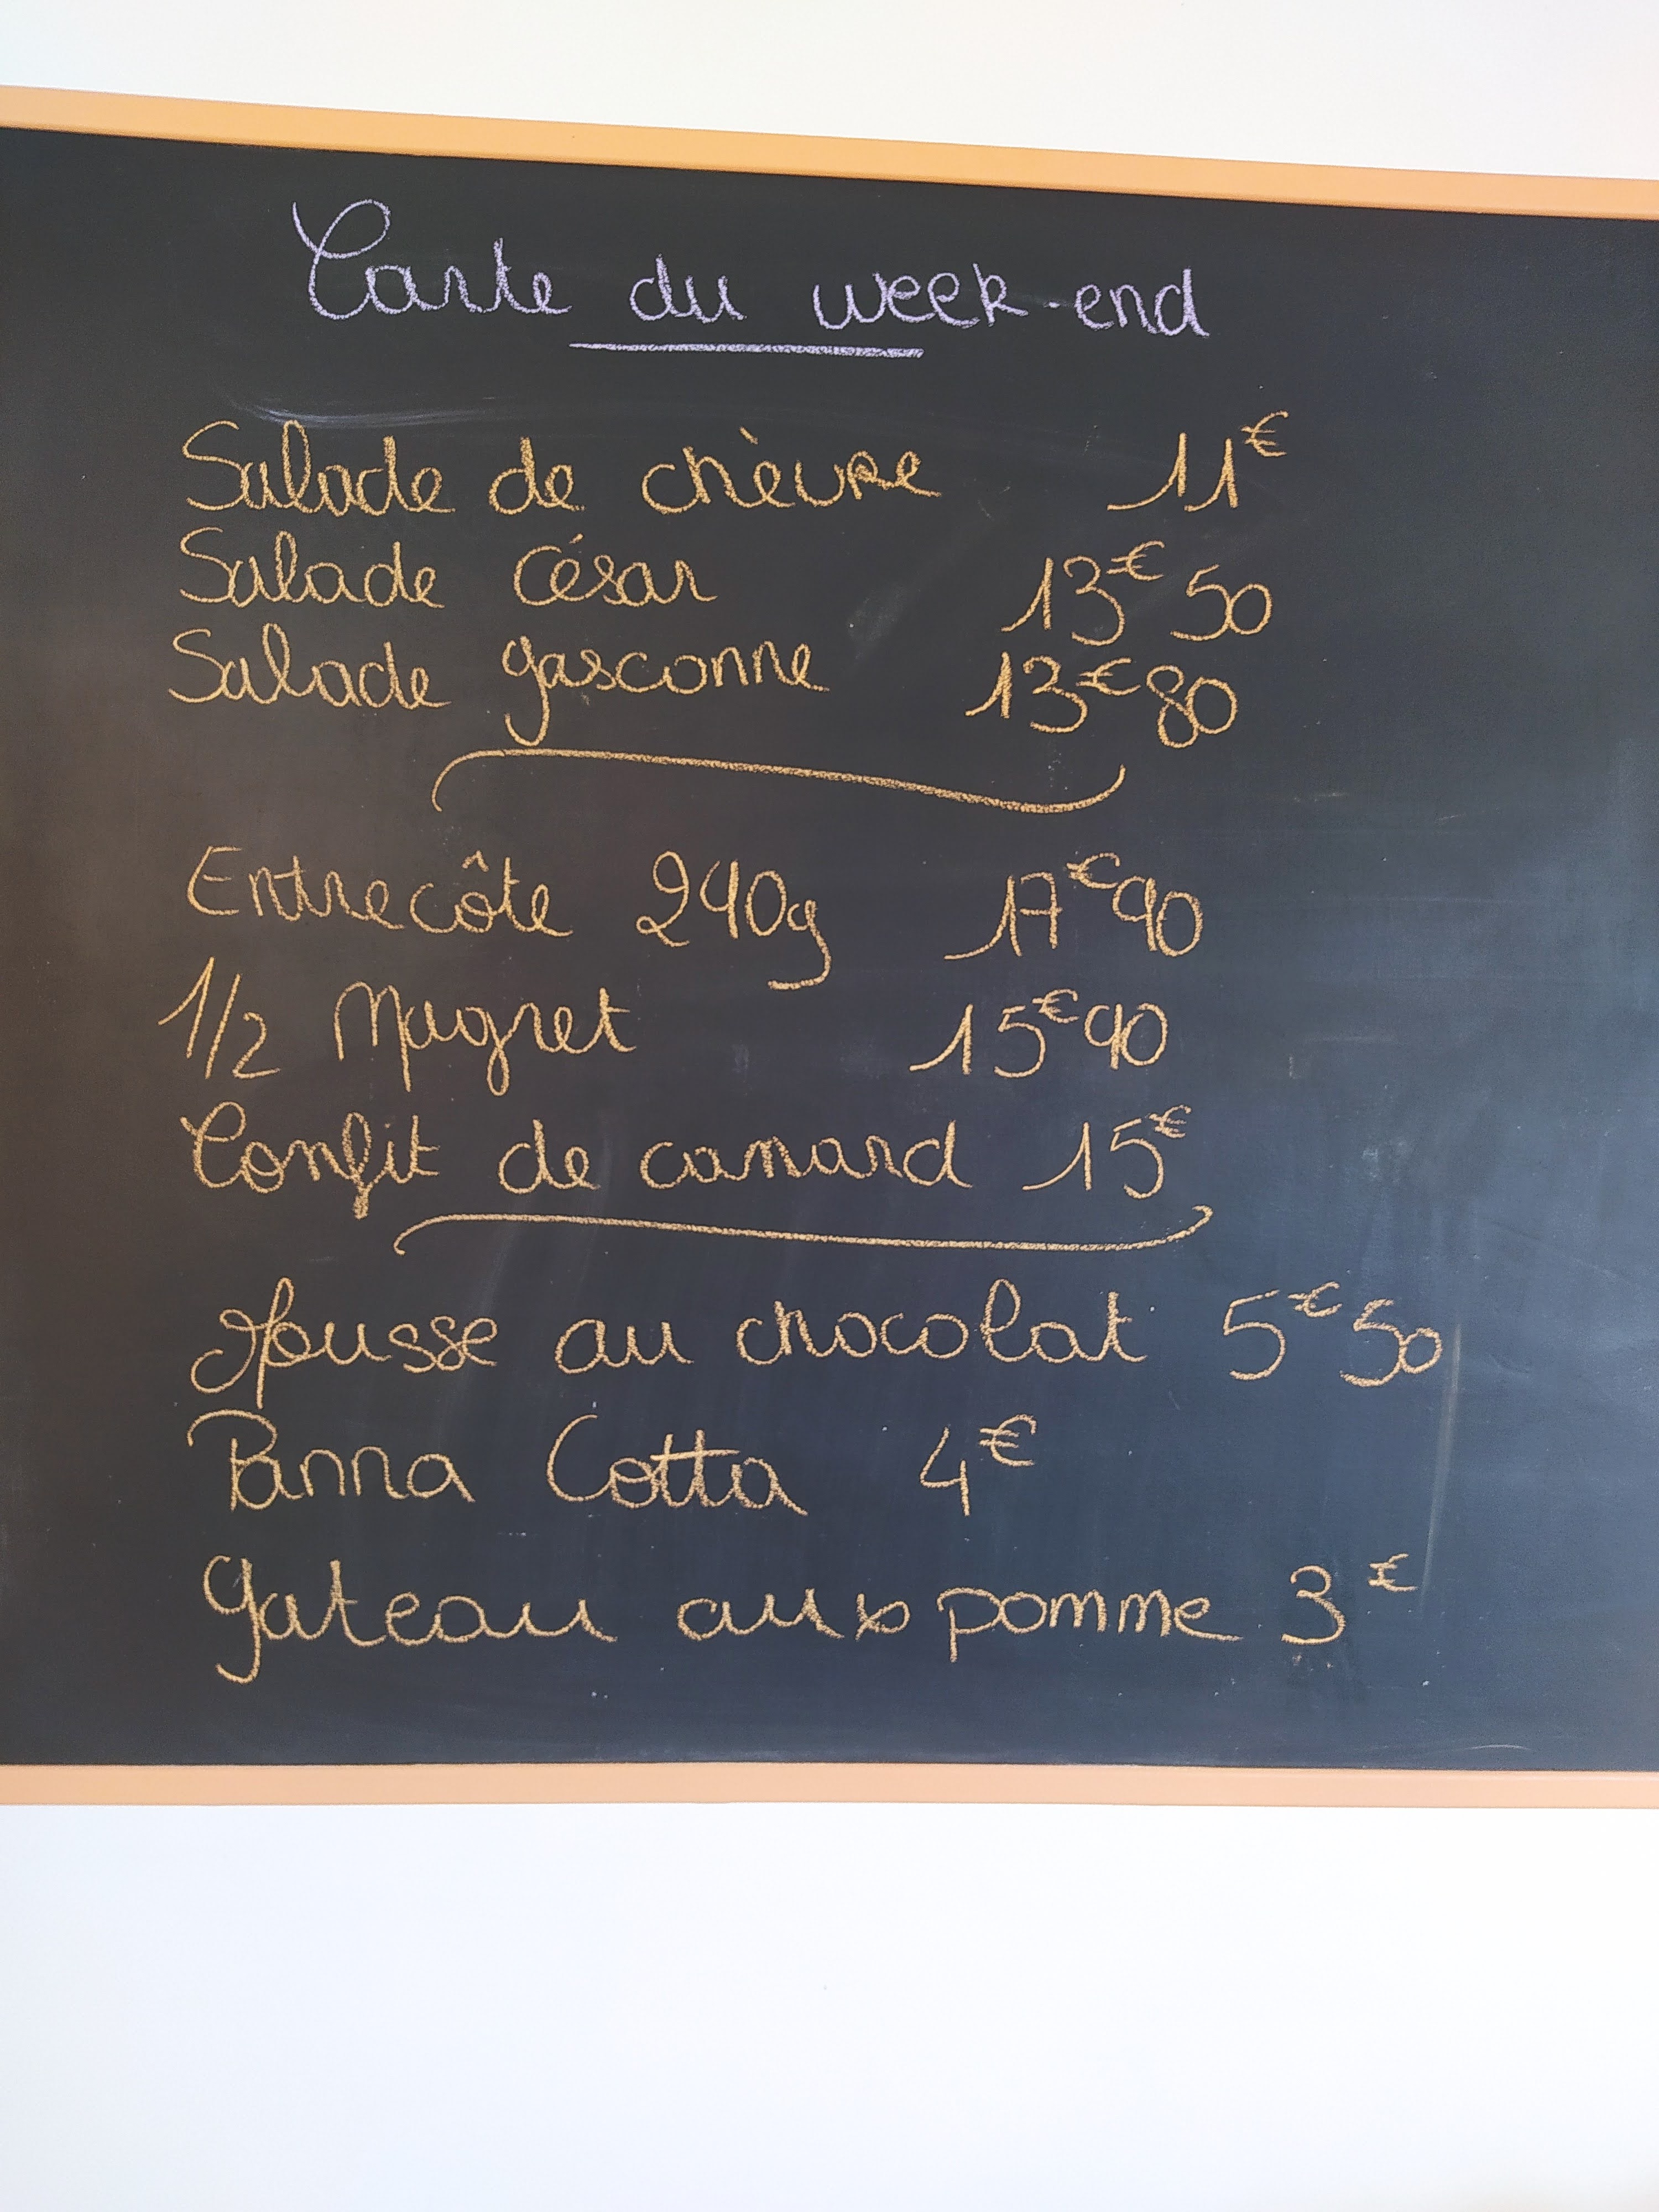 Carte du week-end
Salade de chèvre 11€
Salade césar 13€50
Salade gasconne 13€80
Entrecôte 240g 17€90
1/2 Magret 15€90
Confit de canard 15€
Mousse au chocolat 5€50
Panna Cotta 4€
gateau aux pomme 3€